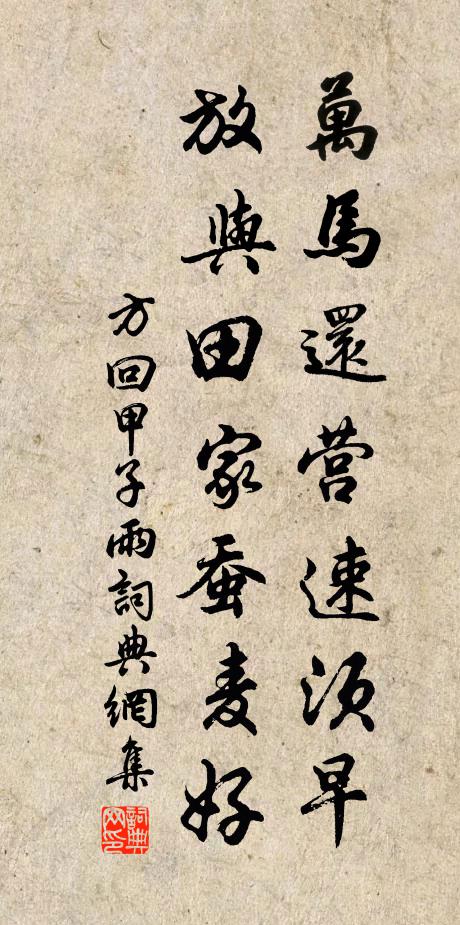 萬馬還营速須早
放與田家蚕麦好
方回甲子雨詞典網集
詞典网印